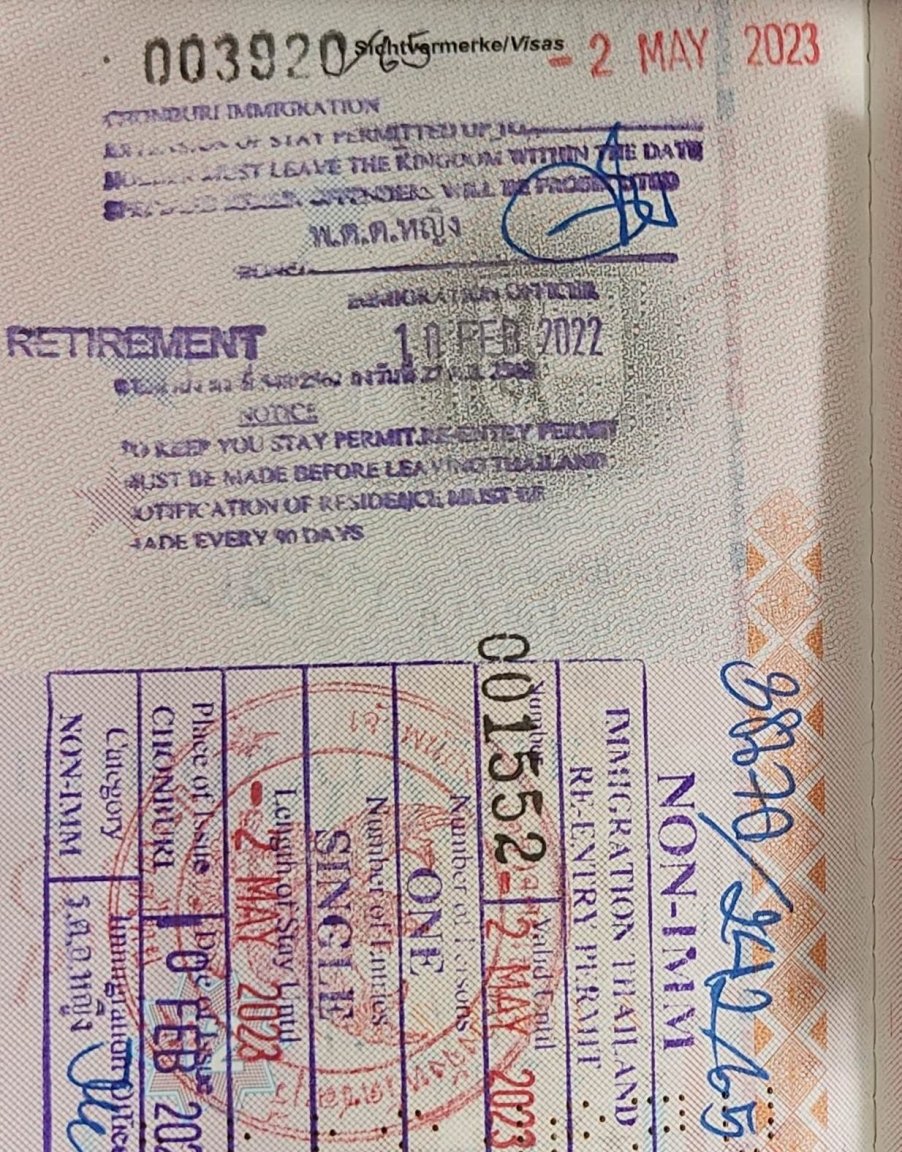 003920/65 Sichtvermerke/Visas - 2 MAY 2023
CHONBURI IMMIGRATION
EXTENSION OF STAY PERMITTED UP TO
HOLDER MUST LEAVE THE KINGDOM WITHIN THE DATE
OFFENDERS WILL BE PROSECUTED
พ.ต.ต.หญิง
IMMIGRATION OFFICER
RETIREMENT 10 FEB 2022
NOTICE
TO KEEP YOU STAY PERMIT.RE-ENTRY PERMIT
MUST BE MADE BEFORE LEAVING THAILAND
NOTIFICATION OF RESIDENCE MUST BE
MADE EVERY 90 DAYS
NON-IMM
IMMIGRATION THAILAND
RE-ENTRY PERMIT
Number Valid Until
001552 - 2 MAY 2023
Number of Persons
ONE
Number of Entries
SINGLE
Length of Stay Until
- 2 MAY 2023
Place of Issue Date of Issue
CHONBURI 10 FEB 202
Category Immigration Office
NON-IMM ร.ต.อ.หญิง